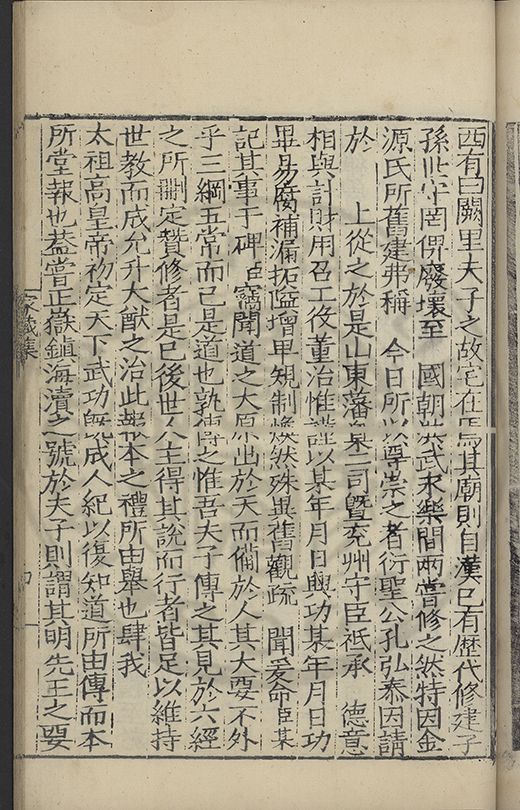 西有曰闕里夫子之故宅在焉其廟則自漢已有歷代修建子
孫世守罔俾廢壞至 國朝洪武永樂間兩嘗修之然特因金
源氏所舊建弗稱 今日所以尊崇之者衍聖公孔弘泰因請
於 上從之於是山東藩臬二司暨兗州守臣祗承 德意
相與計財用召工役董治惟謹以某年月日興功某年月日功
畢易腐補漏拓隘增卑規制煥然殊異舊觀疏 聞爰命臣某
記其事于碑臣竊聞道之大原出於天而備於人其大要不外
乎三綱五常而已是道也孰傳之惟吾夫子傳之其見於六經
之所刪定贊修者是已後世人主得其說而行者皆足以維持
世教而成允升大猷之治此報本之禮所由舉也肆我
太祖高皇帝初定天下武功旣成人紀以復知道所由傳而本
所堂報也蓋嘗正嶽鎮海瀆之號於夫子則謂其明先王之要
家藏集
四